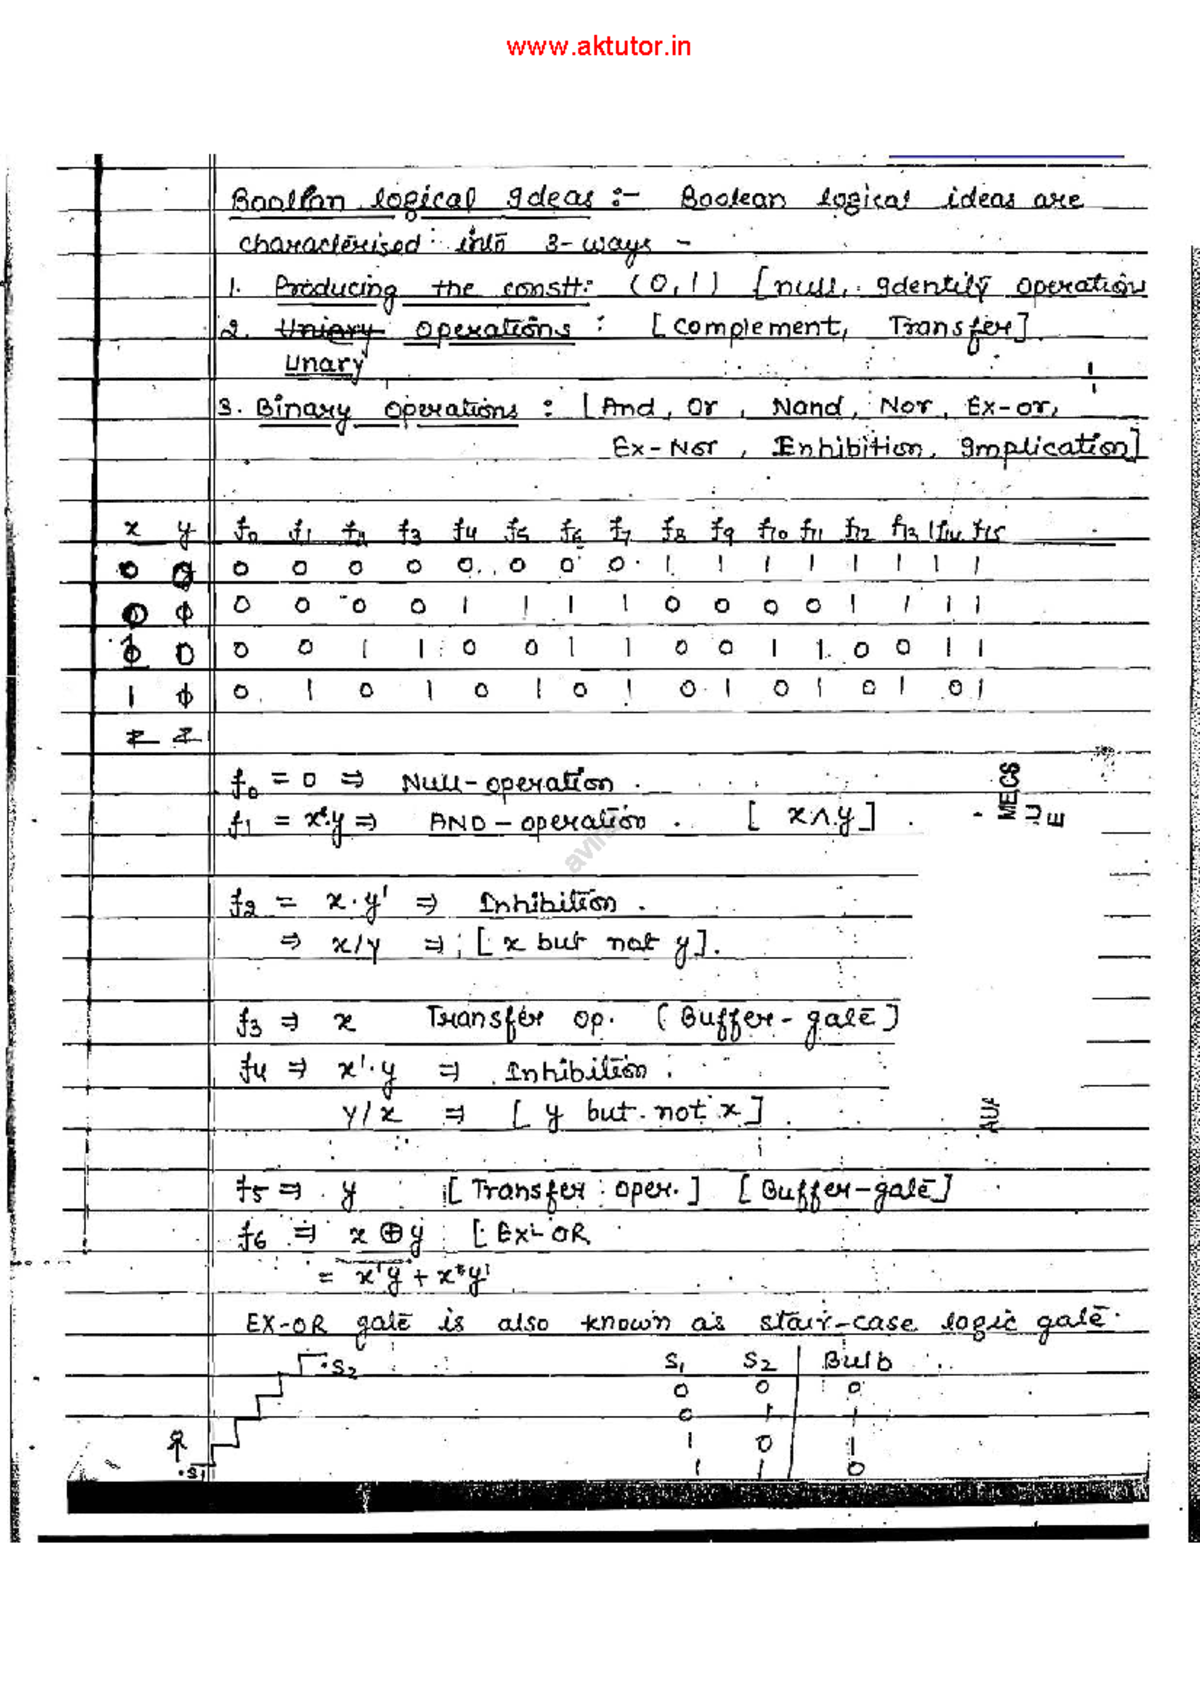 www.aktutor.in
Boollan logical Ideas :- Boolean logical ideas are
characterised into 3-ways -
1. Producing the constt: (0,1) [null, Identity operation
2. Uniary operations : [complement, Transfer]
Unary
3. Binary operations : [And, Or, Nand, Nor, Ex-or,
Ex-Nor, Inhibition, Implication]
x y f0 f1 f2 f3 f4 f5 f6 f7 f8 f9 f10 f11 f12 f13 f14 f15
0 0 0 0 0 0 0 0 0 0 1 1 1 1 1 1 1 1
0 1 0 0 0 0 1 1 1 1 0 0 0 0 1 1 1 1
1 0 0 0 1 1 0 0 1 1 0 0 1 1 0 0 1 1
1 1 0 1 0 1 0 1 0 1 0 1 0 1 0 1 0 1
f0 = 0 ⇒ Null-operation.
f1 = x·y ⇒ AND-operation. [x∧y]
MECS
avira
f2 = x·y' ⇒ Inhibition.
⇒ x/y ⇒ [x but not y].
f3 ⇒ x Transfer op. [Buffer-gate]
f4 ⇒ x'·y ⇒ Inhibition.
y/x ⇒ [y but not x]
AUA
f5 ⇒ y [Transfer oper.] [Buffer-gate]
f6 ⇒ x⊕y [EX-OR
= x'y + xy'
EX-OR gate is also known as stair-case logic gate.
S2 S1 S2 Bulb
0 0 0
0 1 1
1 0 1
S1 1 1 0